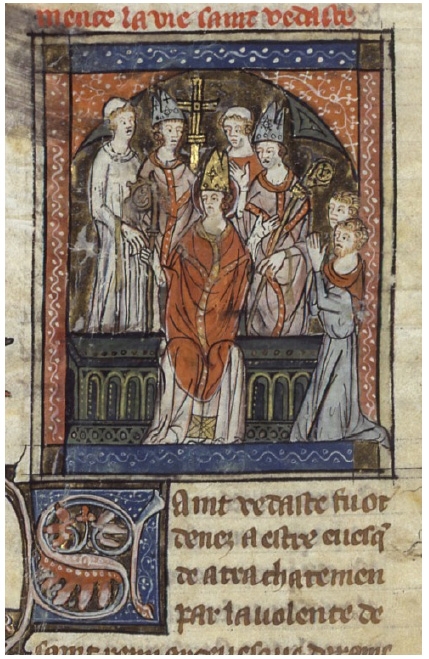 mence la vie saint vedaste
Saint vedaste fu or
denez a estre euesq̃
de atrachatemen
par la uolente de
saint remi arceuesque de